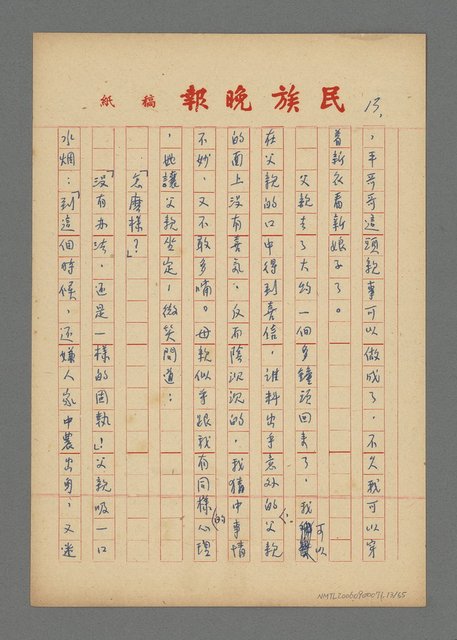 民族晚報 稿紙
13,
，平哥哥這頭親事可以做成了，不久我可以穿
着新衣看新娘子了。
父親去了大約一個多鐘頭回來了，我可以
在父親的口中得到喜信，誰料出乎意外的父親
的面上沒有喜氣，反而陰沉沉的，我猜中事情
不妙，又不敢多嘴。母親似乎跟我有同樣的心理
，她讓父親坐定，微笑問道：
「怎麼樣？」
「沒有办法，还是一樣的固執！」父親吸一口
水烟：「到這個時候，还嫌人家中農出身，又迷
NMTL20060900076.13/65